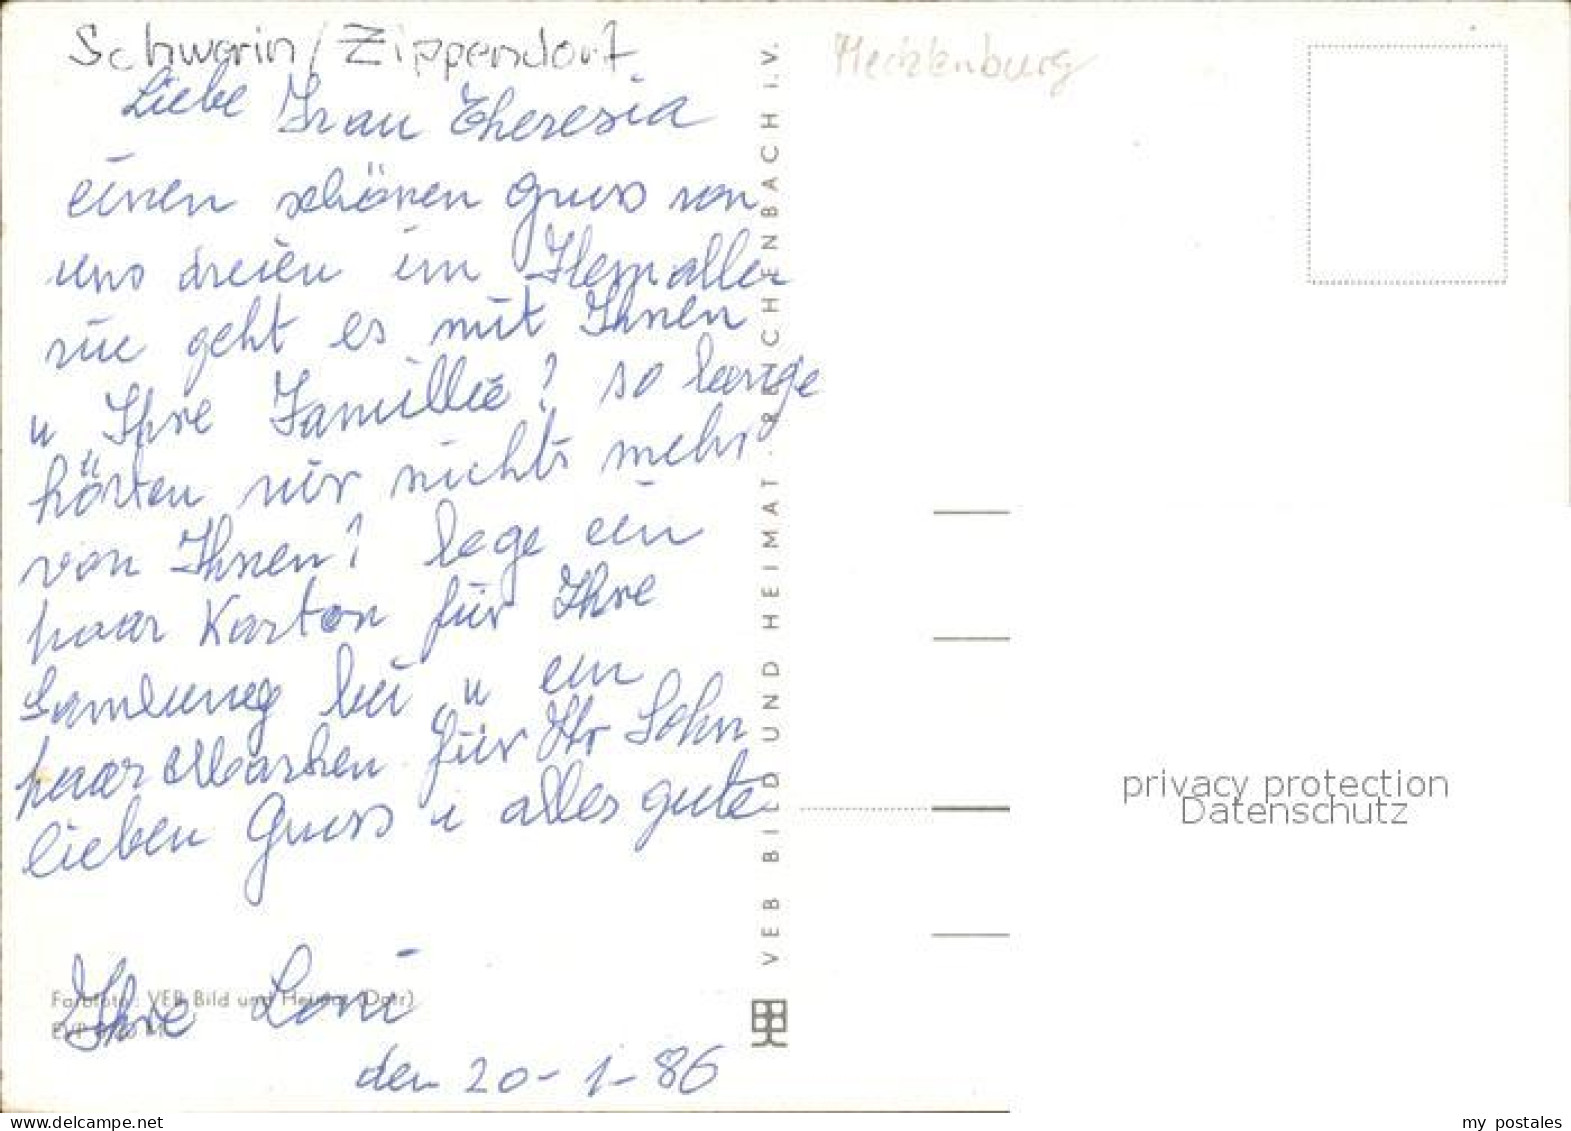 Schwerin/Zippendorf
Mecklenburg
Liebe Frau Theresia
einen schönen Gruss von
uns dreien im
wie geht es mit Ihnen
u Ihre Familie? so lange
hörten wir nichts mehr
von Ihnen? lege ein
paar Karten für Ihre
Samlung bei u ein
paar Marken für Ihr Sohn
lieben Gruss u alles gute
Ihre Loni
den 20-1-86
Farbfoto: VEB Bild und Heimat
EVP
VEB BILD UND HEIMAT · REICHENBACH i.V.
privacy protection
Datenschutz
my postales